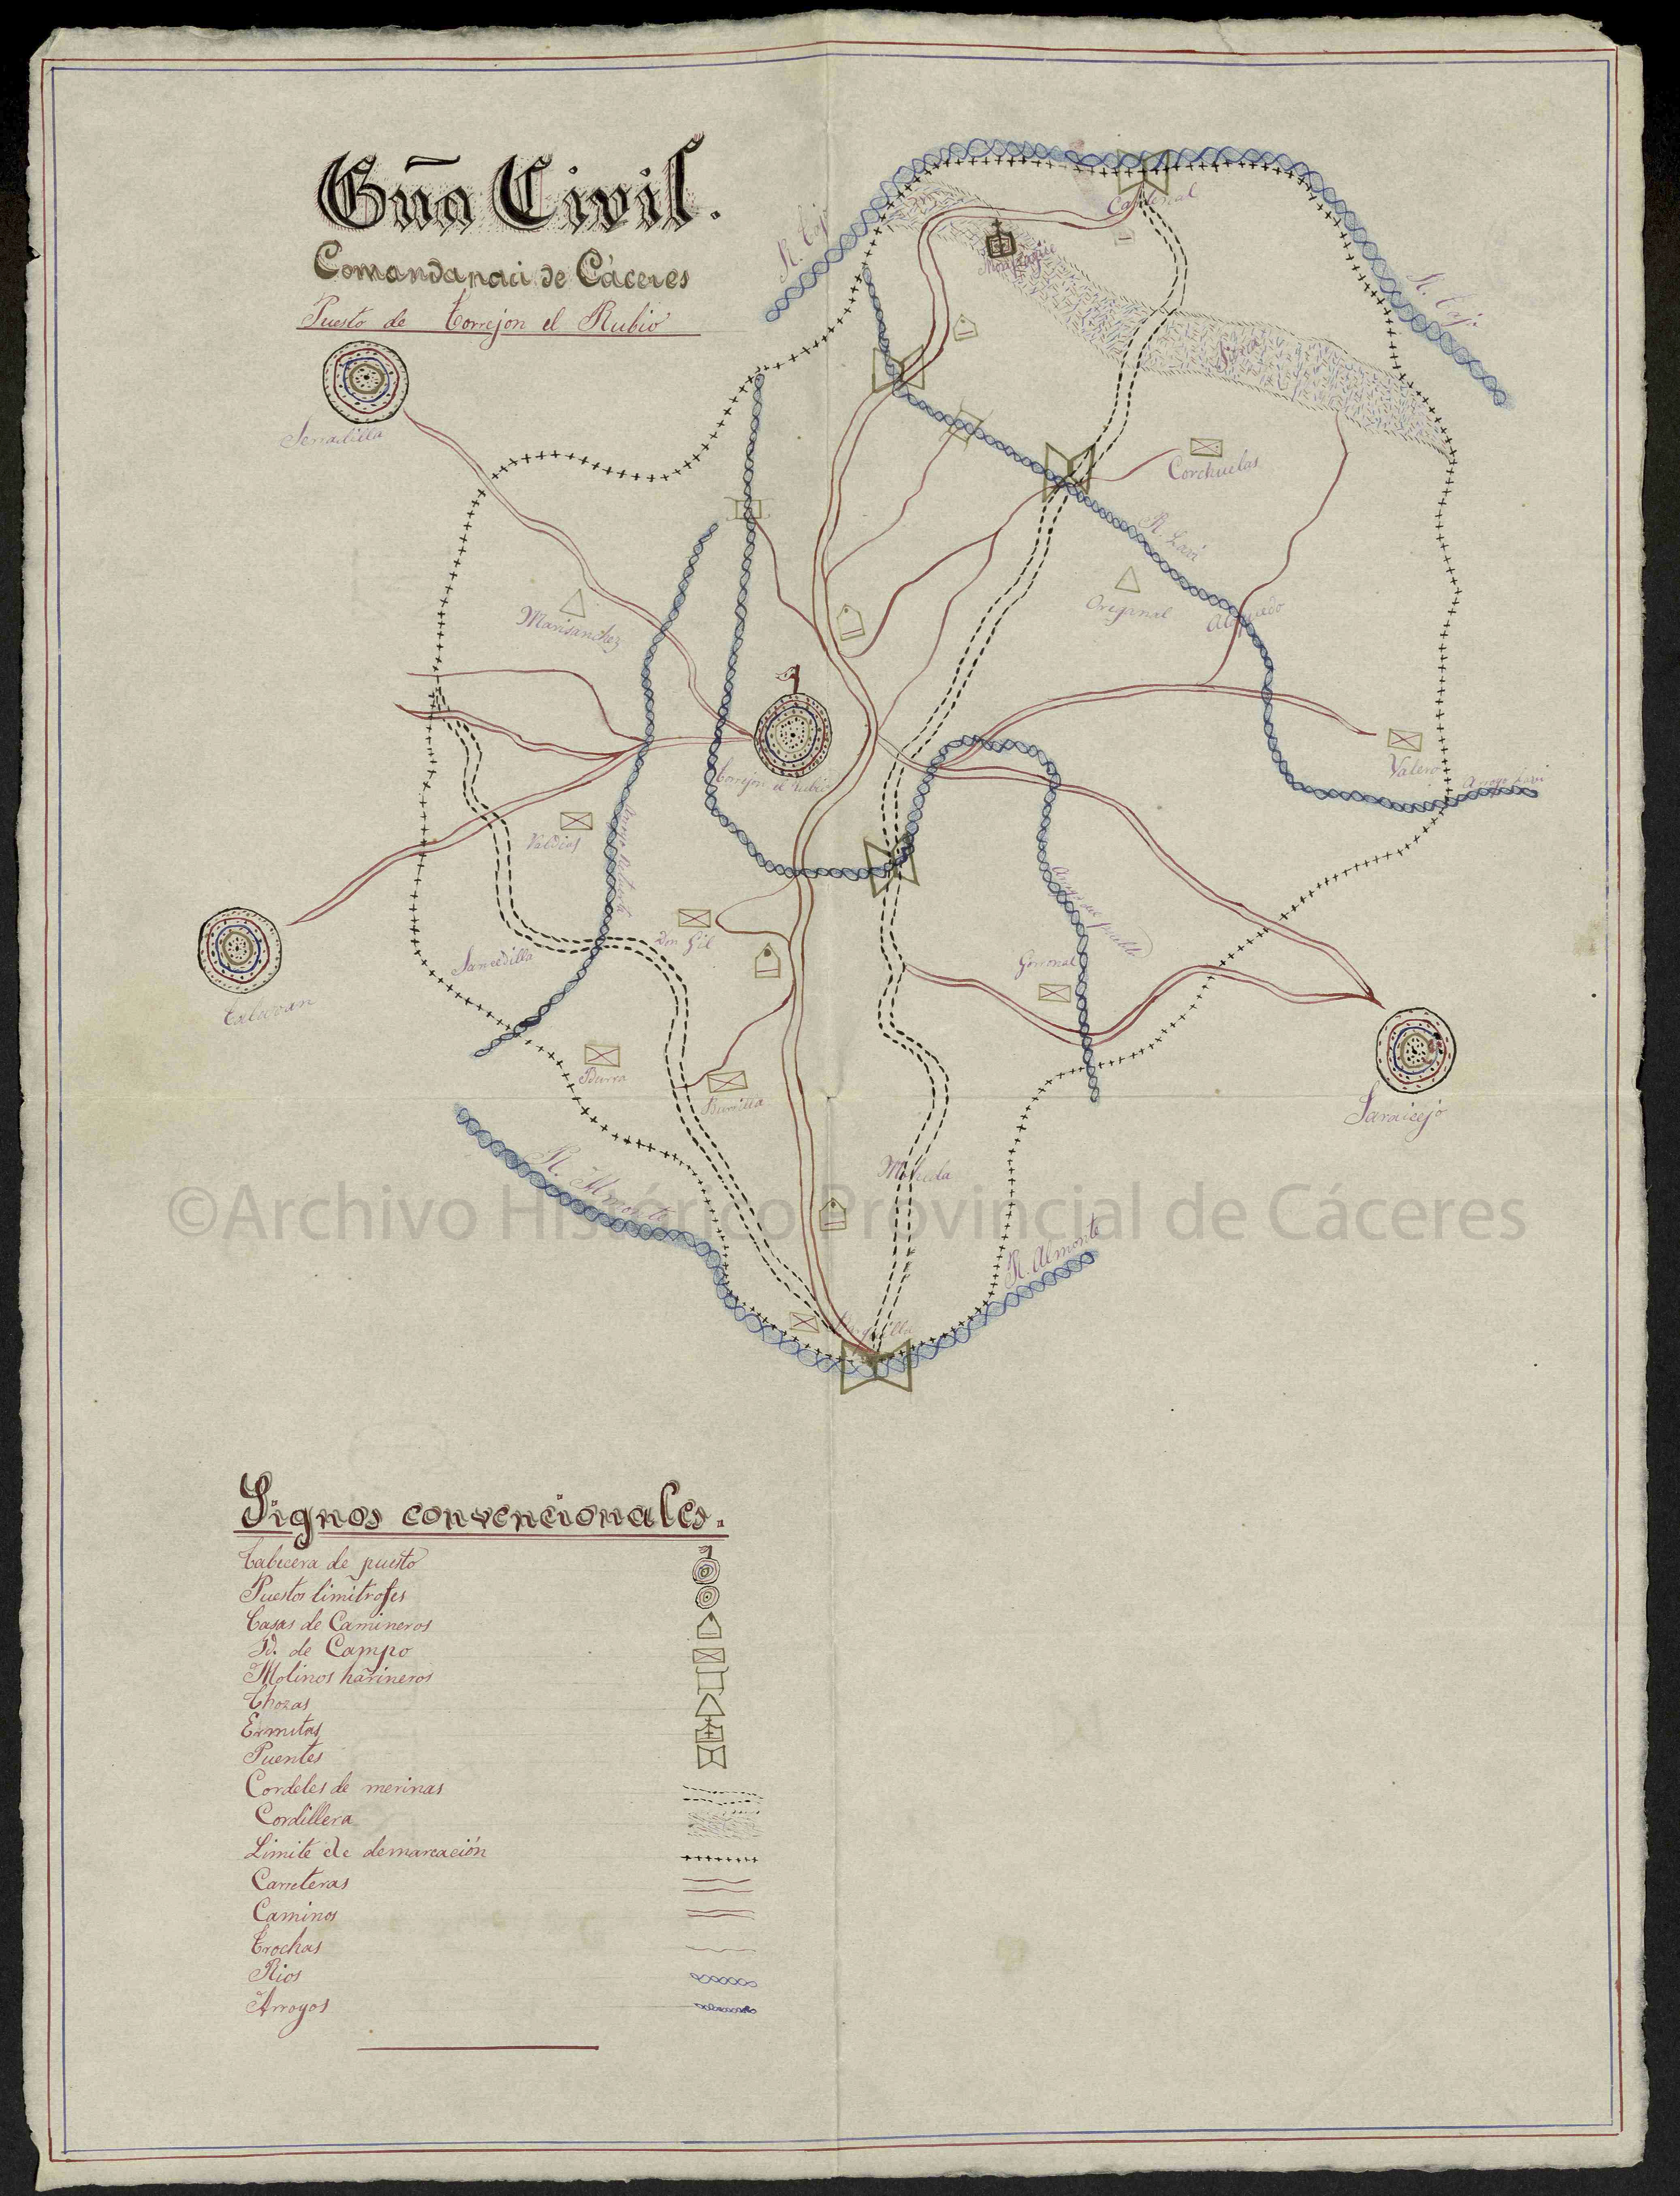 Gũa Civil.
Comandanaci de Cáceres
Puesto de Torrejon el Rubio
R. Tajo
Cardenal
R. Tajo
Monfragüe
Sierra
Serradilla
Corchuelas
R. Lavi
Marisanchez
Oreganal
Torrejon el Rubio
Valero
Arroyo Lavi
Valdios
Arroyo del pueblo
Don Gil
Sancedilla
Gorronal
Talavan
Burra
Burrilla
Saraicejo
R. Almonte
Moheda
©Archivo Histórico Provincial de Cáceres
R. Almonte
Signos convencionales.
Cabecera de puesto
Puestos limitrofes
Casas de Camineros
Id. de Campo
Molinos harineros
Chozas
Ermitas
Puentes
Cordeles de merinas
Cordillera
Limite de demarcación
Carreteras
Caminos
Trochas
Rios
Arroyos